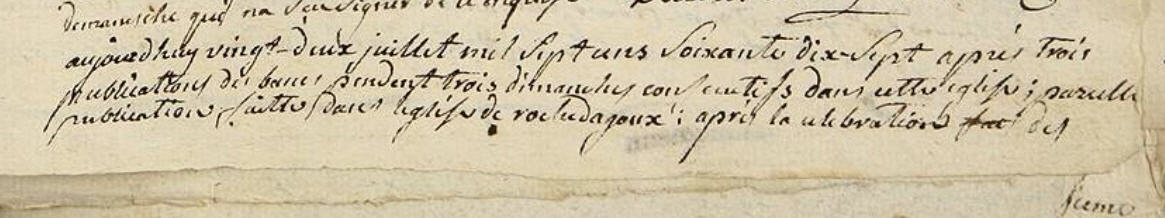 demaniche que na sceu signer de ce enquis
aujourdhuy vingt-deux juillet mil sept cens soixante dix-sept après trois
publications des bancs pendent trois dimanches consecutifs dans cette eglise; pareille
publication faitte dans leglise de rochedagoux; après la celebration des